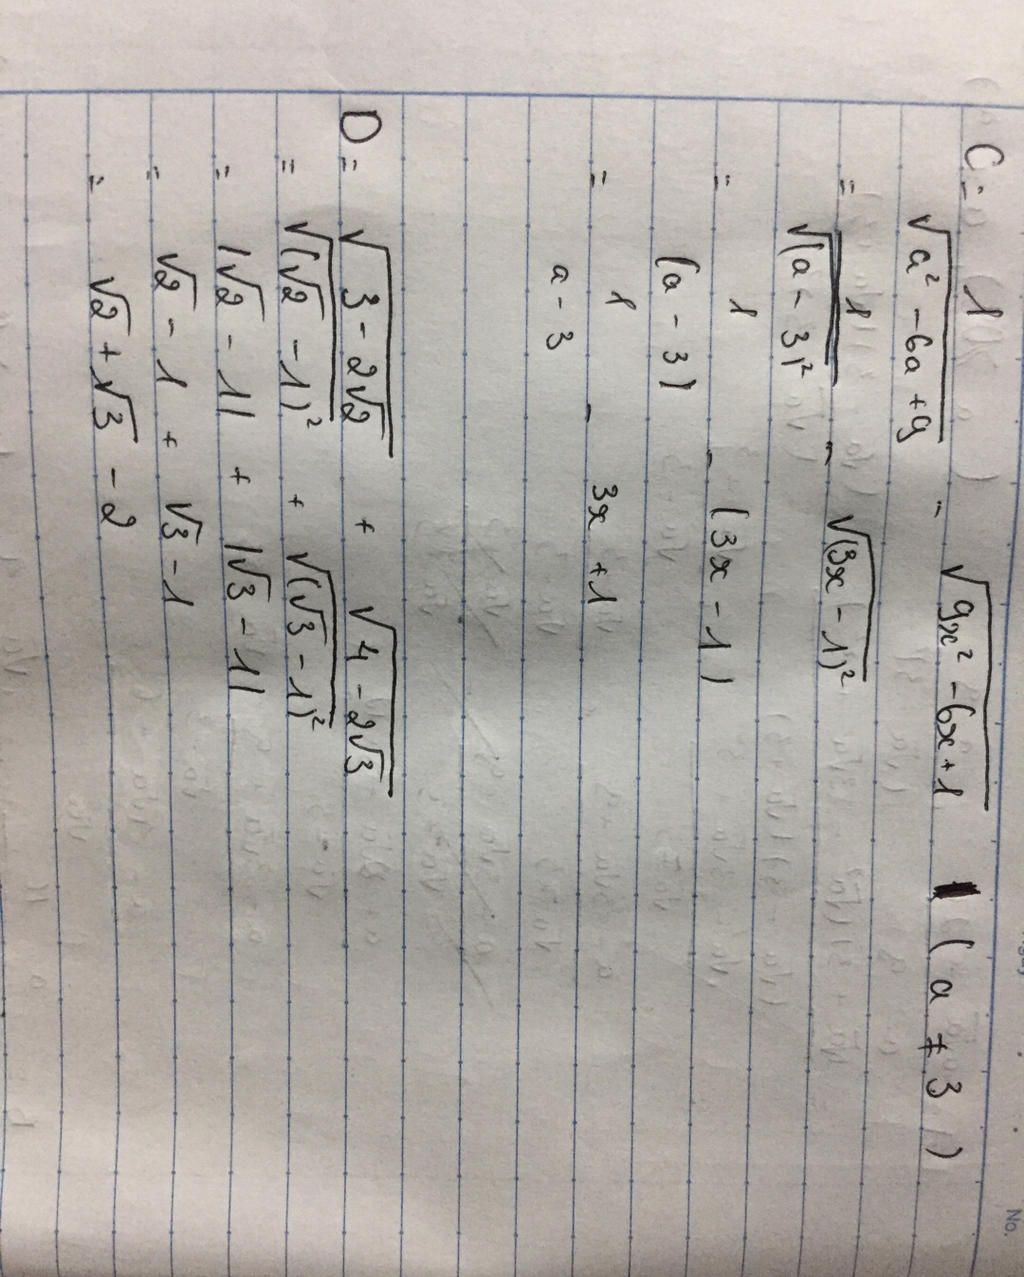 No.
C = 1 / √(a² - 6a + 9) - √(9x² - 6x + 1) (a ≠ 3)
= 1 / √((a - 3)²) - √((3x - 1)²)
= 1 / (a - 3) - (3x - 1)
= 1 / a - 3 - 3x + 1
D = √(3 - 2√2) + √(4 - 2√3)
= √((√2 - 1)²) + √((√3 - 1)²)
= |√2 - 1| + |√3 - 1|
= √2 - 1 + √3 - 1
= √2 + √3 - 2